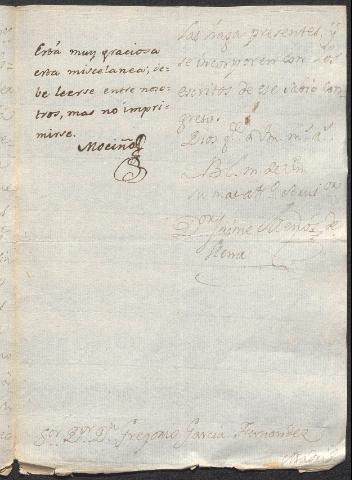 Está muy graciosa
esta miscelanea; de-
be leerse entre noso-
tros, mas no impri-
mirse.
Mociño
las haga presentes, y
se incorporen con los
escritos de ese sabio con-
greso.
Dios
B. L. m. de Vm
su mas
Dn. Jaime
Sor. Dr. Dn. Gregorio Garcia Fernandez